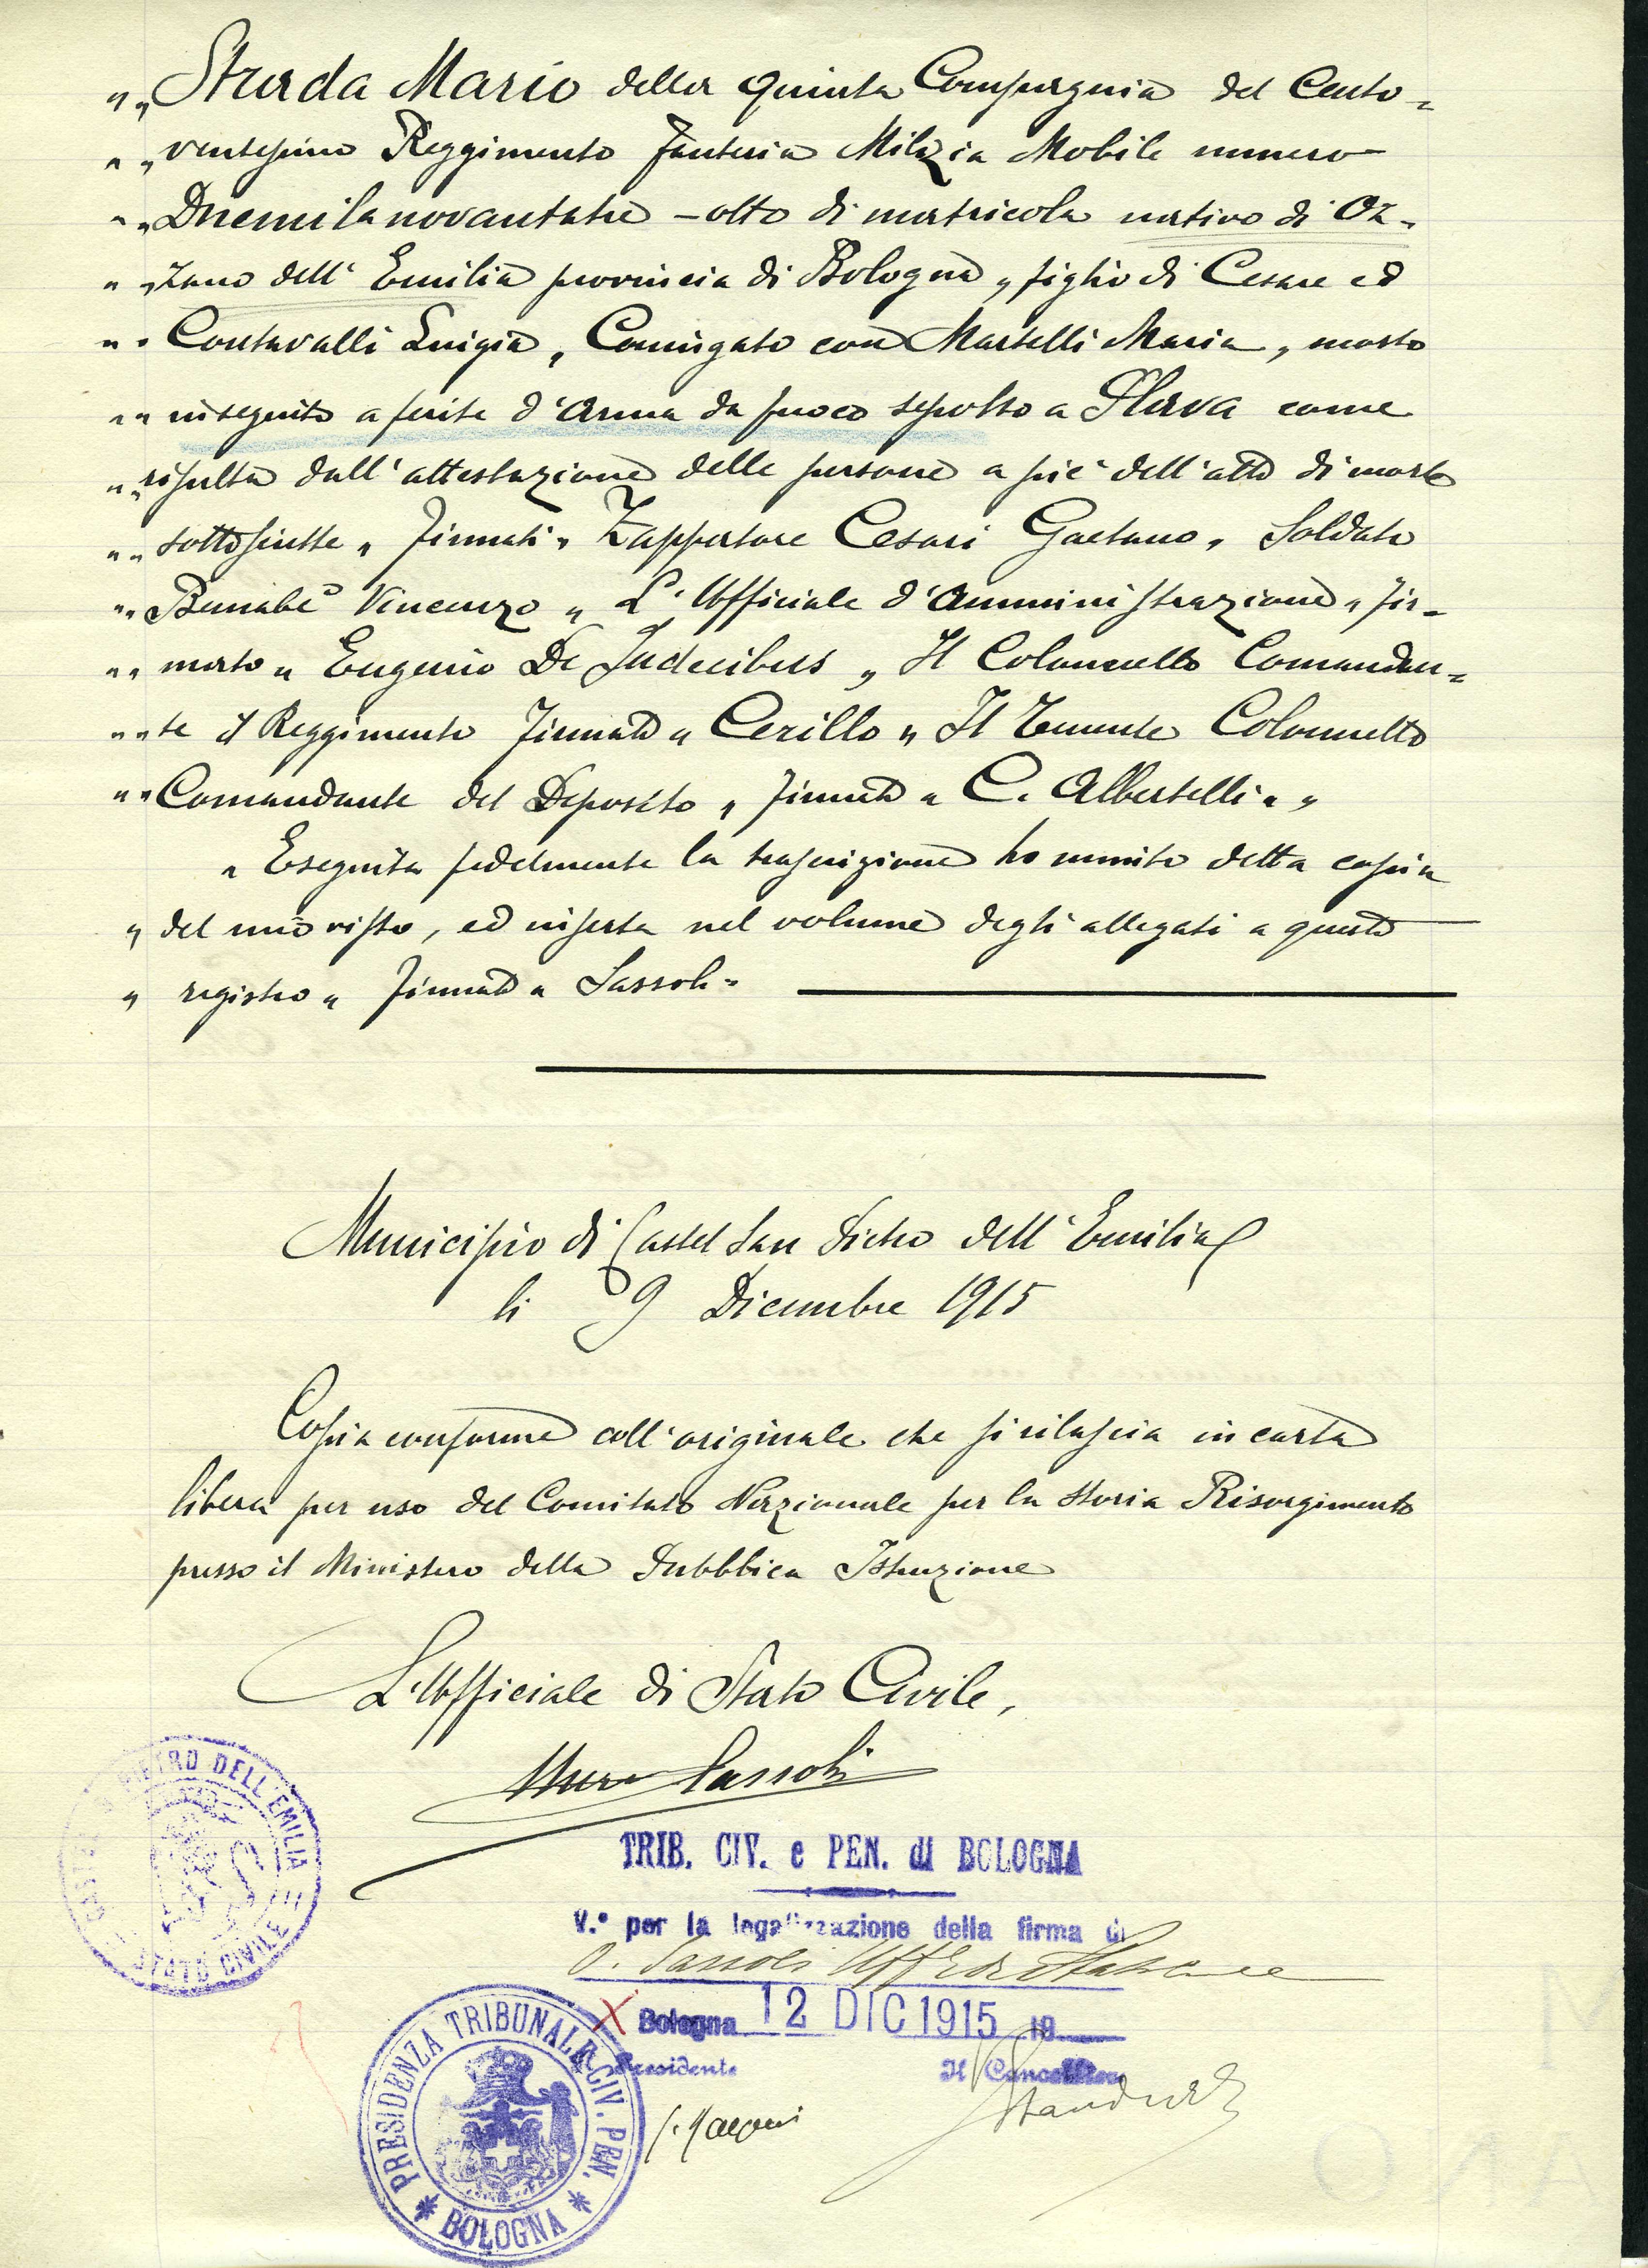 „„ Strada Mario della quinta Compagnia del Cento=
„„ ventesimo Reggimento Fanteria Milizia Mobile numero
„„ Duemilanovantatre - otto di matricola nativo di Oz=
„„ zano dell'Emilia provincia di Bologna, figlio di Cesare ed
„„ Contavalli Luigia, Coniugato con Martelli Maria, morto
„„ inseguito a ferite d'Arma da fuoco sepolto a Plava come
„„ risulta dall'attestazione delle persone a piè dell'atto di morte
„„ sottoscritte „ firmati „ Zappatore Cesari Gaetano „ Soldato
„„ Bernabè Vincenzo „ L'Ufficiale d'Amministrazione „ fir=
„„ mato „ Eugenio De Judicibus „ Il Colonnello Comandan=
„„ te il Reggimento firmato „ Cerillo „ Il Tenente Colonnello
„„ Comandante del Deposito „ firmato „ C. Albertelli „ „
„ Eseguita fedelmente la trascrizione ho munito detta copia
„ del mio visto, ed inserta nel volume degli allegati a questo
„ registro „ firmato „ Sassoli =
Municipio di Castel San Pietro dell'Emilia
li 9 Dicembre 1915
Copia conforme coll'originale che si rilascia in carta
libera per uso del Comitato Nazionale per la storia Risorgimento
presso il Ministero della Pubbblica Istruzione
L'Ufficiale di Stato Civile,
Sassoli
PIETRO DELL'EMILIA
STATO CIVILE
TRIB. CIV. e PEN. di BOLOGNA
V.° per la legalizzazione della firma di
O. Sassoli Uff. di Stato Civile
X Bologna 12 DIC 1915 19
Presidente Il Cancelliere
PRESIDENZA TRIBUNALE CIV. PEN.
* BOLOGNA *